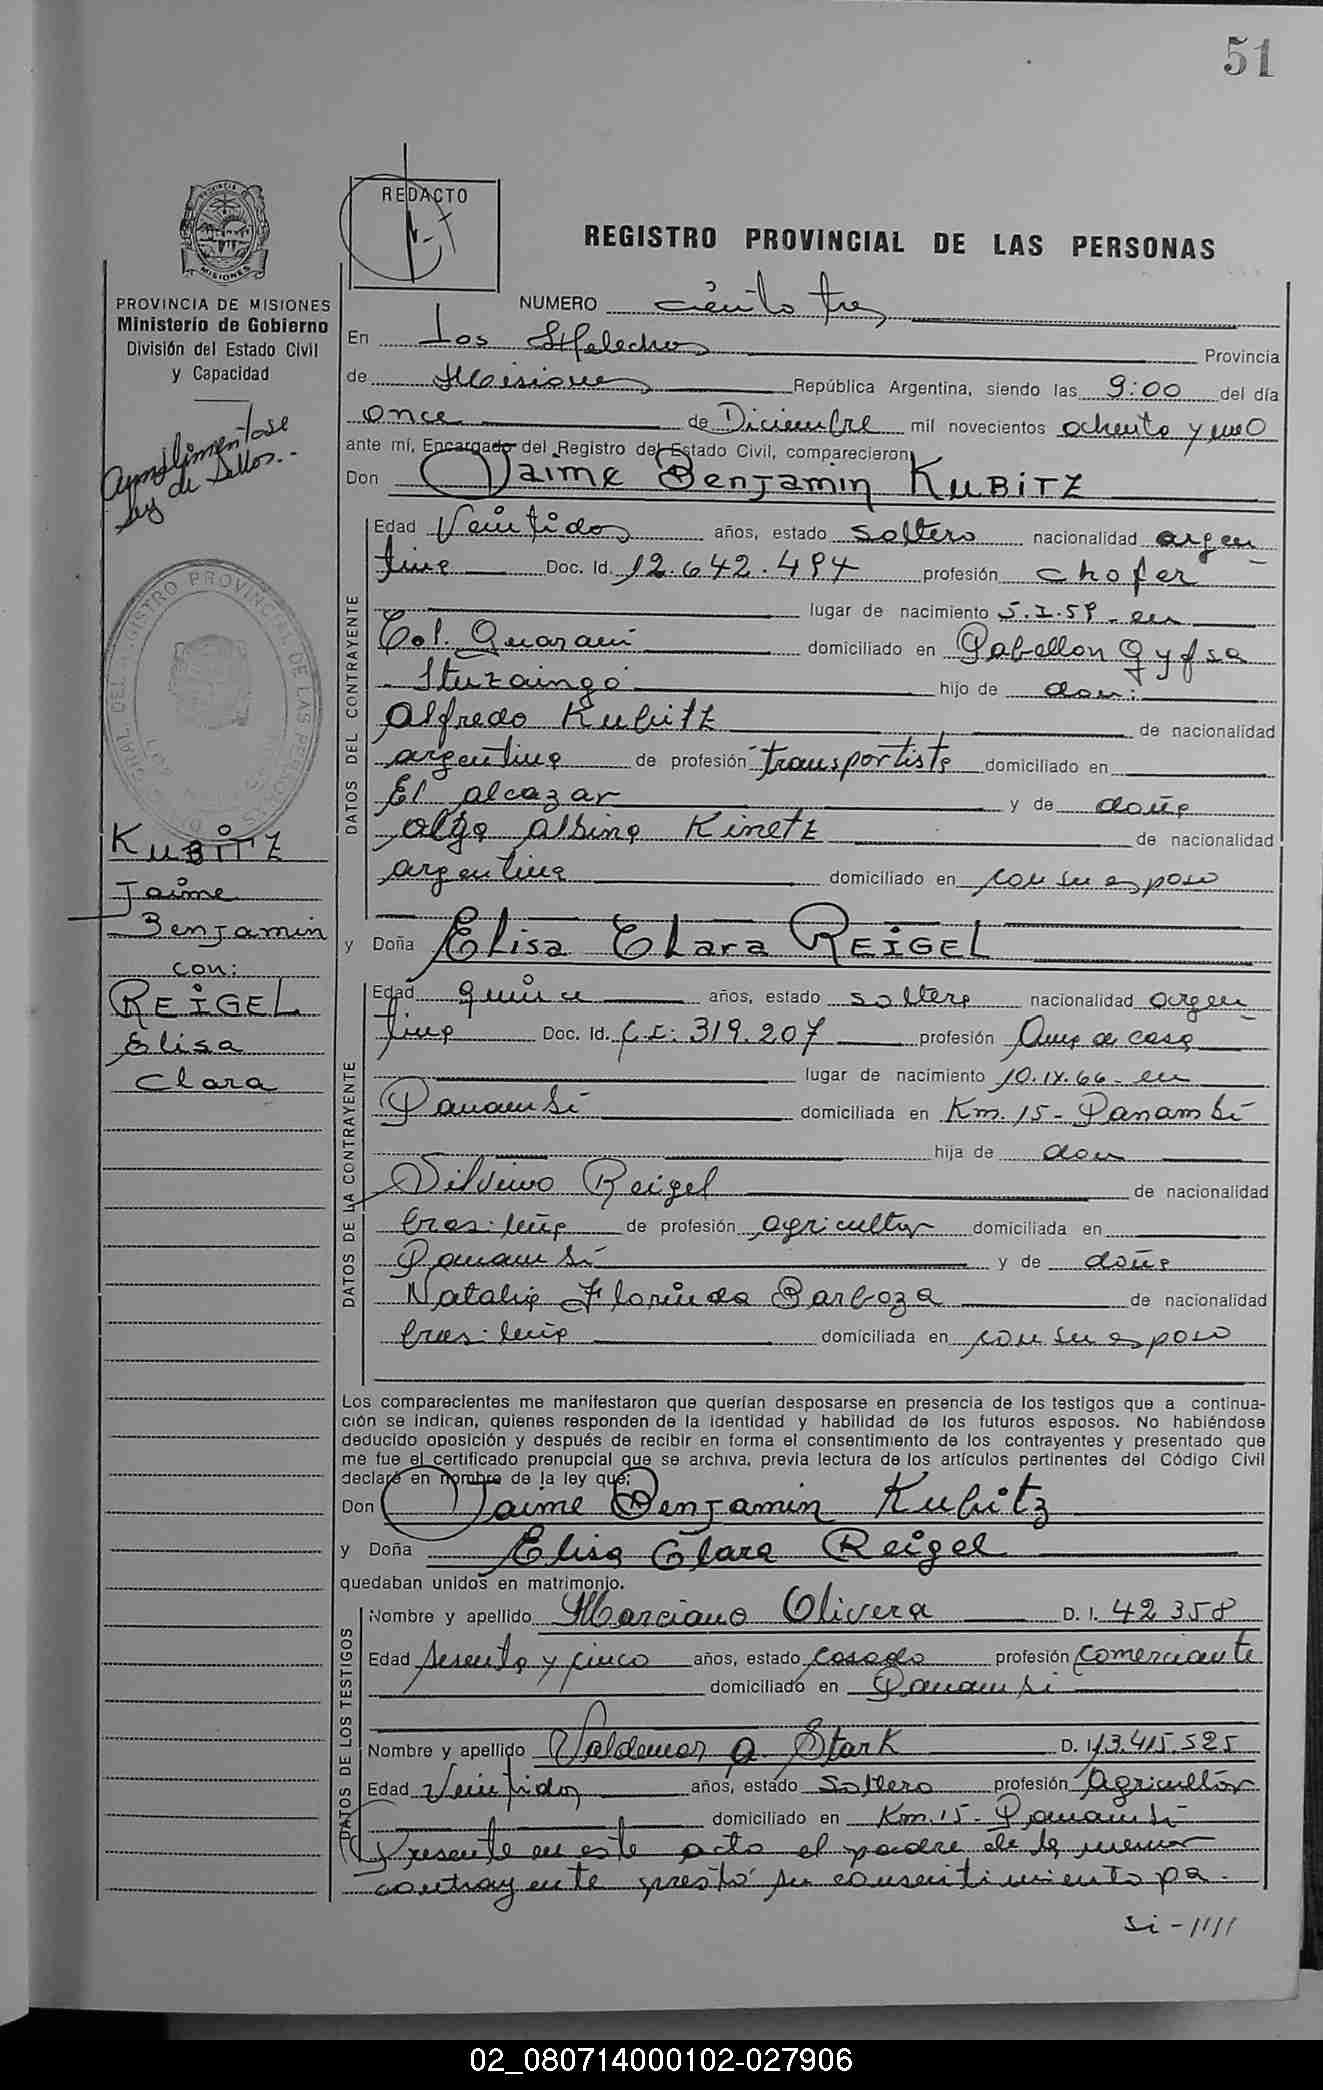 51
REDACTO
REGISTRO PROVINCIAL DE LAS PERSONAS
PROVINCIA DE MISIONES
Ministerio de Gobierno
División del Estado Civil
y Capacidad
Cumplimentose
ley de Sellos.-
KUBITZ
Jaime
Benjamin
con:
REIGEL
Elisa
Clara
NUMERO ciento tres
En Los Helechos Provincia
de Misiones República Argentina, siendo las 9:00 del día
once de Diciembre mil novecientos ochenta y uno
ante mí, Encargado del Registro del Estado Civil, comparecieron
Don Jaime Benjamin KUBITZ
DATOS DEL CONTRAYENTE
Edad Veintidos años, estado soltero nacionalidad argen
tina Doc. Id. 12.642.494 profesión chofer
lugar de nacimiento 5.I.59 - en
Col. Guarani domiciliado en Pabellon G y fsa
Ituzaingo hijo de don:
Alfredo Kubitz de nacionalidad
argentina de profesión transportista domiciliado en
El alcazar y de doña
Olga Albina Kinetz de nacionalidad
argentina domiciliado en con su esposo
y Doña Elisa Clara REIGEL
DATOS DE LA CONTRAYENTE
Edad quince años, estado soltera nacionalidad argen
tina Doc. Id. C.I: 319.207 profesión Ama de casa
lugar de nacimiento 10.IX.66 - en
Panambi domiciliada en Km. 15 - Panambi
hija de don
Silvino Reigel de nacionalidad
brasileña de profesión agricultor domiciliada en
Panambi y de doña
Natalia Florinda Barboza de nacionalidad
brasileña domiciliada en con su esposo
Los comparecientes me manifestaron que querían desposarse en presencia de los testigos que a continua-
ción se indican, quienes responden de la identidad y habilidad de los futuros esposos. No habiéndose
deducido oposición y después de recibir en forma el consentimiento de los contrayentes y presentado que
me fue el certificado prenupcial que se archiva, previa lectura de los artículos pertinentes del Código Civil
declaré en nombre de la ley que:
Don Jaime Benjamin Kubitz
y Doña Elisa Clara Reigel
quedaban unidos en matrimonio.
DATOS DE LOS TESTIGOS
Nombre y apellido Marciano Olivera D. I. 42 358
Edad sesenta y cinco años, estado casado profesión comerciante
domiciliado en Panambi
Nombre y apellido Valdemar A. Stark D. I. 13.415.525
Edad Veintidos años, estado soltero profesión Agricultor
domiciliado en Km. 15 - Panambi
Presente en este acto el padre de la menor
contrayente prestó su consentimiento pa.
si -////
02_080714000102-027906